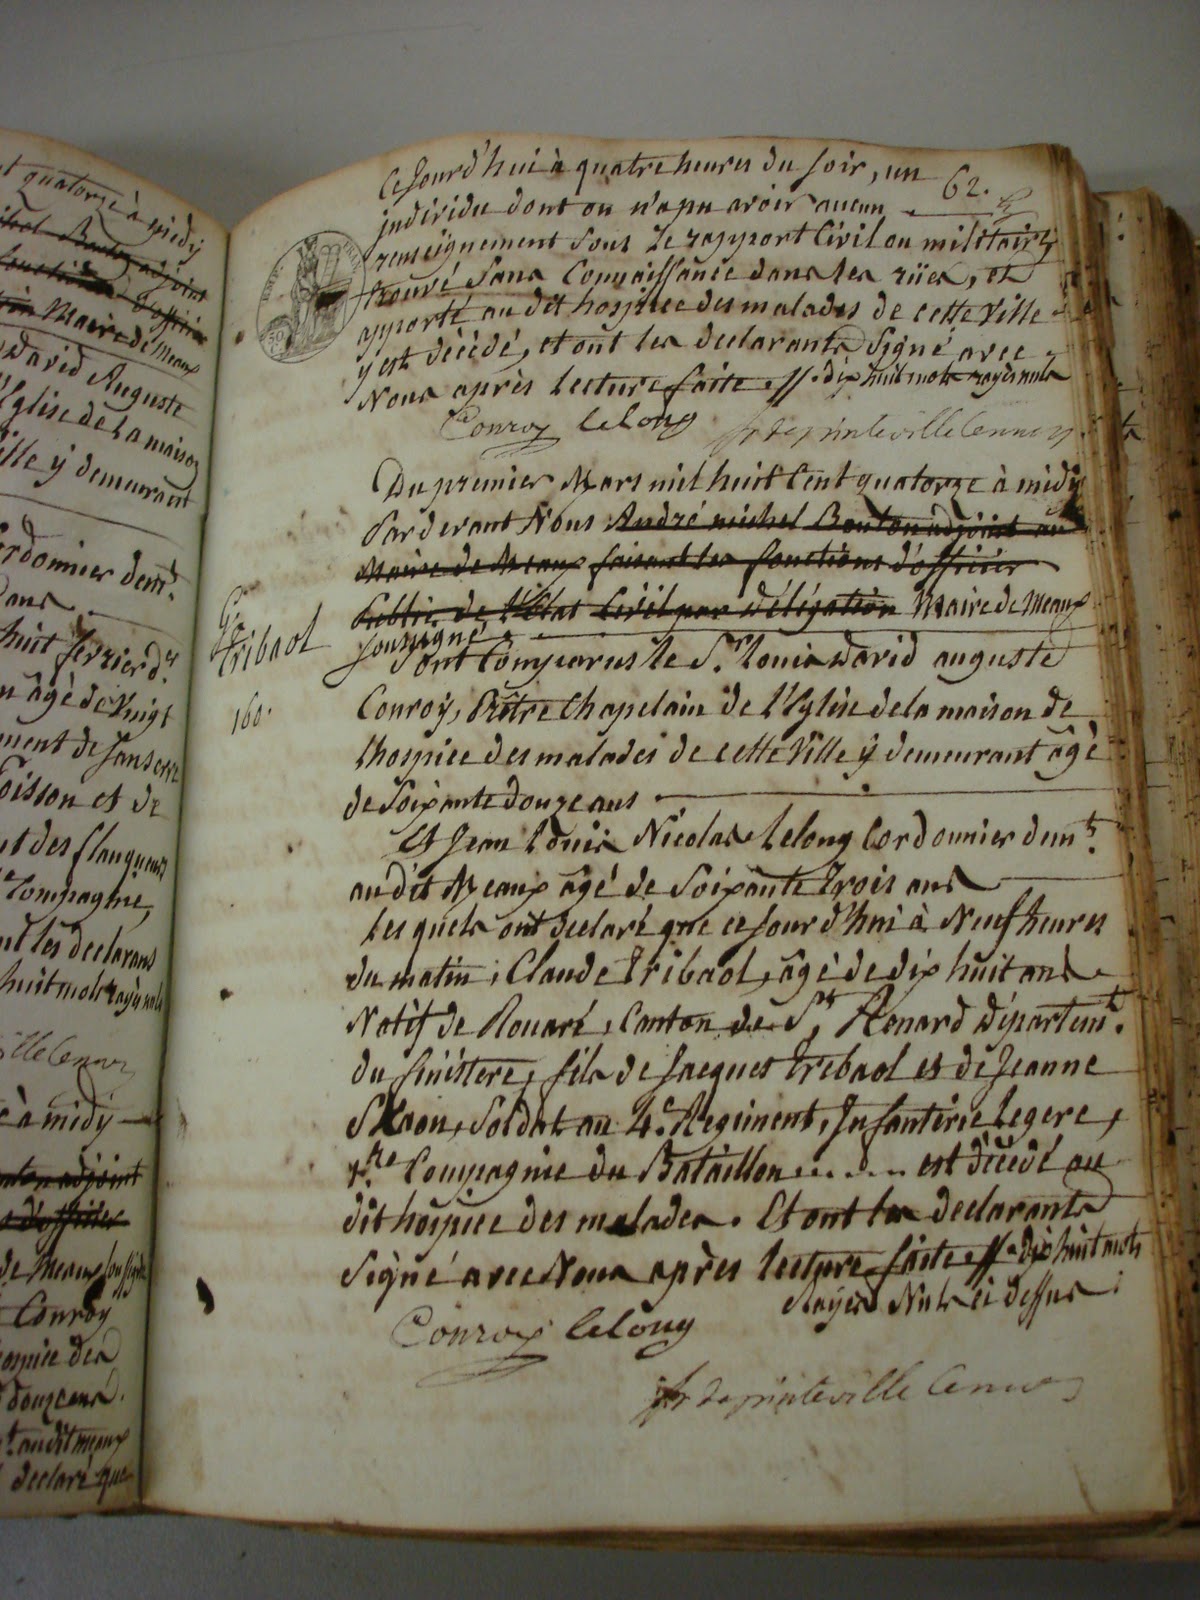 nt quatorze à midy
Michel Bouton adjoint
fonctions d'officier
Maire de Meaux
David Auguste
l'Eglise de la maison
ille ÿ demeurant
Cordonnier demt.
ans
huit fevrier dr.
n âgé de Vingt
ment de
oisson et de
nt des flanqueurs
Compagnie,
nt les declarans
huit mots rayés nuls
ville Cennes
à midy
Bouton adjoint
d'officier
de Meaux soussigné
Conroy
hospice des
douze ans.
t. au dit meaux
declaré que
62.
Ce Jourd'hui à quatre heures du soir, un
individu dont on n'a pu avoir aucun
renseignement sous Le rapport Civil ou militaire
trouvé Sans Connaissance dans les rües, et
apporté au dit hospice des malades de cette Ville
y est décédé, et ont les declarants Signé avec
Nous après Lecture faite. //. dix huit mots rayés nuls
Conroy Lelong
Du premier Mars mil huit Cent quatorze à midy
Pardevant Nous André michel Bouton adjoint au
Maire de Meaux faisant les fonctions d'officier
Public de l'Etat Civil par délégation Maire de Meaux
soussigné
Tribaol
160.
Sont Comparus le Sr. Louis David auguste
Conroÿ, Prêtre Chapelain de l'Eglise de la maison de
l'hospice des malades de cette Ville ÿ demeurant âgé
de Soixante douze ans
Et Jean Louis Nicolas Lelong Cordonnier demt.
au dit Meaux âgé de Soixante trois ans
Lesquels ont declaré que ce Jourd'hui à Neuf heures
du matin, Claude Tribaol, âgé de dix huit ans
Natif de Rouaré, Canton de St. Renard Départemt.
du finistere, fils de Jacques Tribaol et de Jeanne
Soldat au 4e. Regiment, Infanterie Legere,
Compagnie du Bataillon ....... est décédé au
dit hospice des malades. Et ont les declarants
Signé avec Nous après lecture faite //. dix huit mots
Rayés Nuls ci dessus.
Conroy Lelong